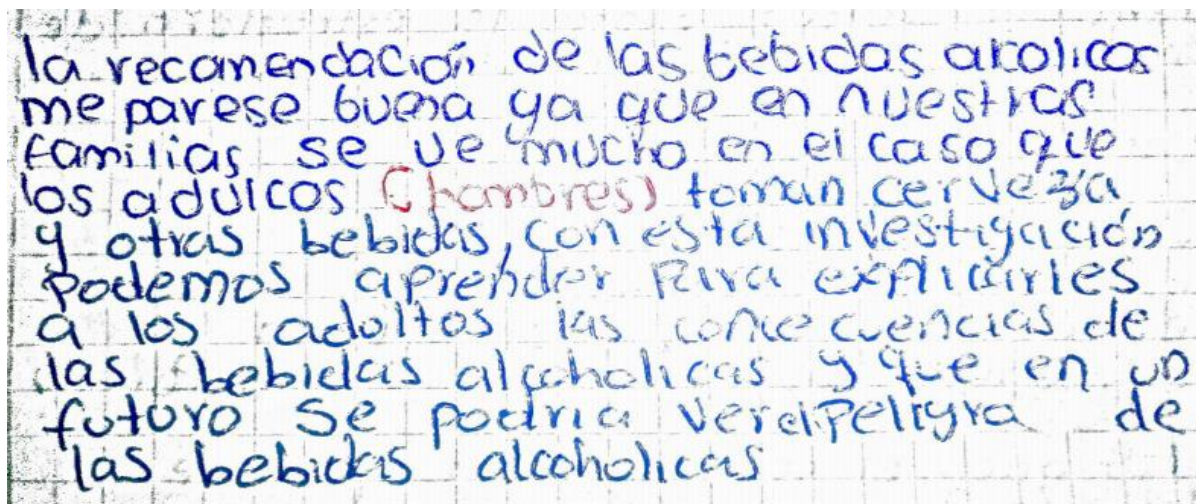 la recomendación de las bebidas arcolicas
me parese buena ya que en nuestras
familias se ve mucho en el caso que
los adulcos (hombres) toman cerveza
y otras bebidas, con esta investigación
podemos aprender para explicarles
a los adultos las concecuencias de
las bebidas alcoholicas y que en un
futuro se podria ver el peligra de
las bebidas alcoholicas